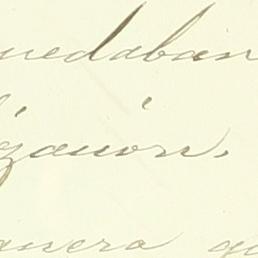 uedaban
ganon.
anera qu